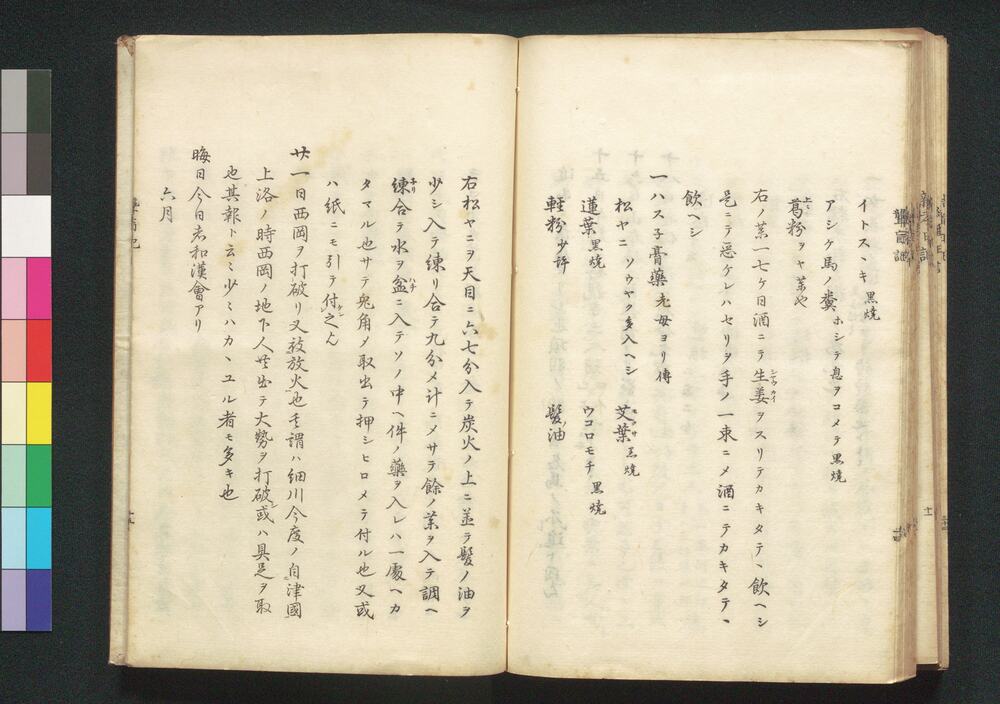 イトスヽキ 黒焼
アシケ馬ノ糞 ホシテ息ヲコメテ黒焼
葛粉ヲヤ茶や
右ノ薬一七ケ日酒ニテ生姜ヲスリテカキタテヽ飲ヘシ
是ニテ悪ケレハセリヲ手ノ一束ニメ酒ニテカキタテヽ
飲ヘシ
一ハス子膏藥 老母ヨリ傳
松ヤニ ソウヤク多入ヘシ 艾葉 黒焼
蓮葉 黒焼 ウコロモチ 黒焼
軽粉 少許 髪ノ油
右松ヤニヲ天目ニ六七分入テ炭火ノ上ニ並テ髪ノ油ヲ
少シ入テ練リ合テ九分メ計ニメサテ餘ノ薬ヲ入テ調ヘ
練合テ水ヲ盆ニ入テソノ中ヘ件ノ藥ヲ入レハ一處ヘカ
タマル也サテ兎角メ取出テ押シヒロメテ付ル也又或
ハ紙ニモ引テ付之ん
廿一日西岡ヲ打破リ又放放火也其謂ハ細川今度ノ自津國
上洛ノ時西岡ノ地下人出テ大勢ヲ打破或ハ具足ヲ取
也其報ト云ミ少ミハカヽユル者モ多キ也
晦日今日和漢會アリ
六月